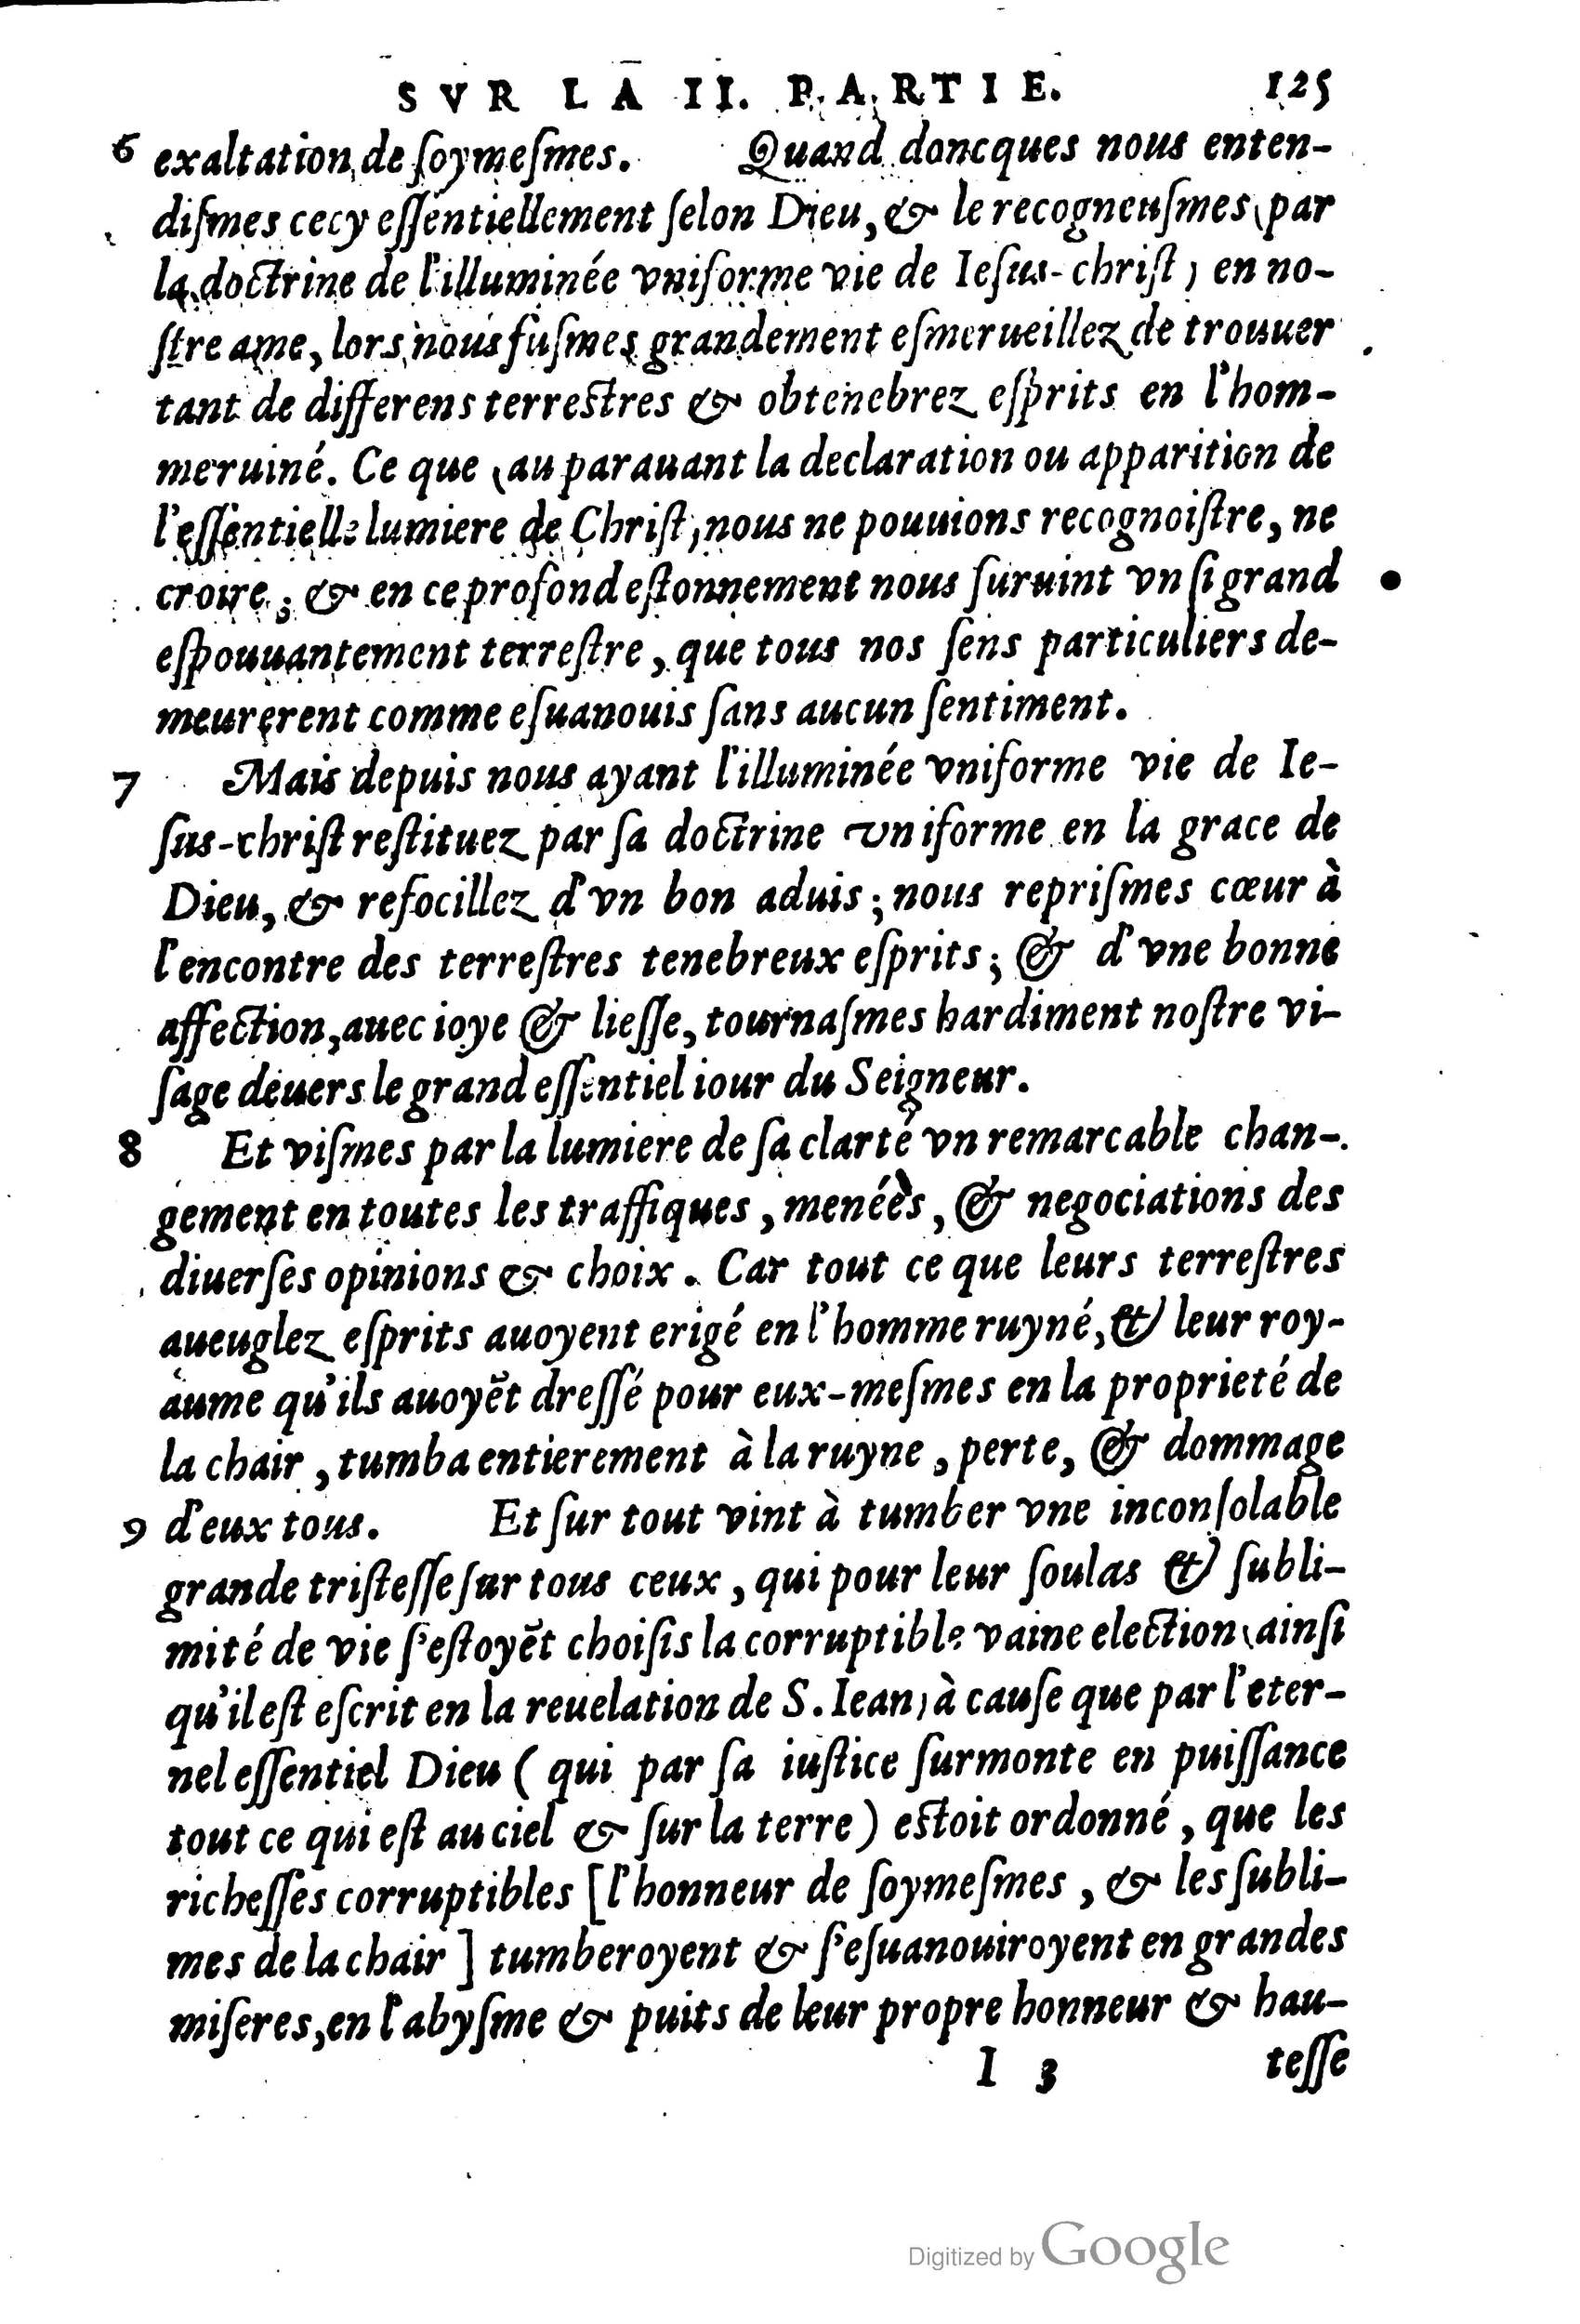 SVR LA II. PARTIE. 125
6 exaltation de ſoymeſmes. Quand doncques nous enten-
diſmes cecy eſſentiellement ſelon Dieu, & le recogneuſmes (par
la doctrine de l'illuminée vniforme vie de Ieſus-chriſt) en no-
ſtre ame, lors nous fuſmes grandement eſmerueillez de trouuer
tant de differens terrestres & obtenebrez eſprits en l'hom-
me ruiné. Ce que (au parauant la declaration ou apparition de
l'eſſentielle lumiere de Chriſt) nous ne pouuions recognoiſtre, ne
croire; & en ce profond eſtonnement nous ſuruint vn ſi grand
eſpouuantement terreſtre, que tous nos ſens particuliers de-
meurerent comme eſuanouis ſans aucun ſentiment.
7 Mais depuis nous ayant l'illuminée vniforme vie de Ie-
ſus-chriſt reſtituez par ſa doctrine vniforme en la grace de
Dieu, & refocillez d'vn bon aduis; nous repriſmes cœur à
l'encontre des terreſtres tenebreux eſprits; & d'vne bonne
affection, auec ioye & lieſſe, tournaſmes hardiment noſtre vi-
ſage deuers le grand eſſentiel iour du Seigneur.
8 Et viſmes par la lumiere de ſa clarté vn remarcable chan-
gement en toutes les traffiques, menées, & negociations des
diuerſes opinions & choix. Car tout ce que leurs terreſtres
aueuglez eſprits auoyent erigé en l'homme ruyné, & leur roy-
aume qu'ils auoyẽt dreſſé pour eux-meſmes en la proprieté de
la chair, tumba entierement à la ruyne, perte, & dommage
9 d'eux tous. Et ſur tout vint à tumber vne inconſolable
grande triſteſſe ſur tous ceux, qui pour leur ſoulas & ſubli-
mité de vie ſ'eſtoyẽt choiſis la corruptible vaine election (ainſi
qu'il eſt eſcrit en la reuelation de S. Iean) à cauſe que par l'eter-
nel eſſentiel Dieu ( qui par ſa iuſtice ſurmonte en puiſſance
tout ce qui eſt au ciel & ſur la terre) estoit ordonné, que les
richeſſes corruptibles [l'honneur de ſoymeſmes, & les ſubli-
mes de la chair] tumberoyent & ſ'eſuanouiroyent en grandes
miſeres, en l'abyſme & puits de leur propre honneur & hau-
I 3 teſſe
Digitized by Google